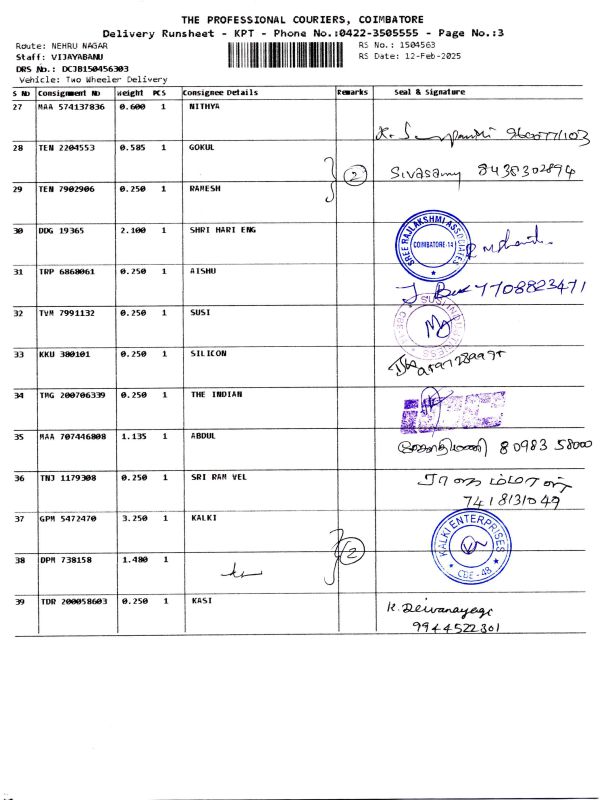 THE PROFESSIONAL COURIERS, COIMBATORE
Delivery Runsheet - KPT - Phone No.:0422-3505555 - Page No.:3
Route: NEHRU NAGAR RS No.: 1504563
Staff: VIJAYABANU RS Date: 12-Feb-2025
DRS No.: DCJB150456303
Vehicle: Two Wheeler Delivery
S No Consignment No Weight PCS Consignee Details Remarks Seal & Signature
27 MAA 574137836 0.600 1 NITHYA
28 TEN 2204553 0.585 1 GOKUL
2 Sivasamy 8438302894
29 TEN 7902906 0.250 1 RAMESH
30 DDG 19365 2.100 1 SHRI HARI ENG
SREE RAJLAKSHMI ASSOCIATES COIMBATORE-14
31 TRP 6868061 0.250 1 AISHU
7708823471
32 TVM 7991132 0.250 1 SUSI
33 KKU 380101 0.250 1 SILICON
34 TMG 200706339 0.250 1 THE INDIAN
35 MAA 707446808 1.135 1 ABDUL
80983 58000
36 TNJ 1179308 0.250 1 SRI RAM VEL
7418131049
37 GPM 5472470 3.250 1 KALKI
KALKI ENTERPRISES CBE-48
38 DPM 738158 1.480 1 2
39 TDR 200058603 0.250 1 KASI
K. Deivanayagi
9944522301